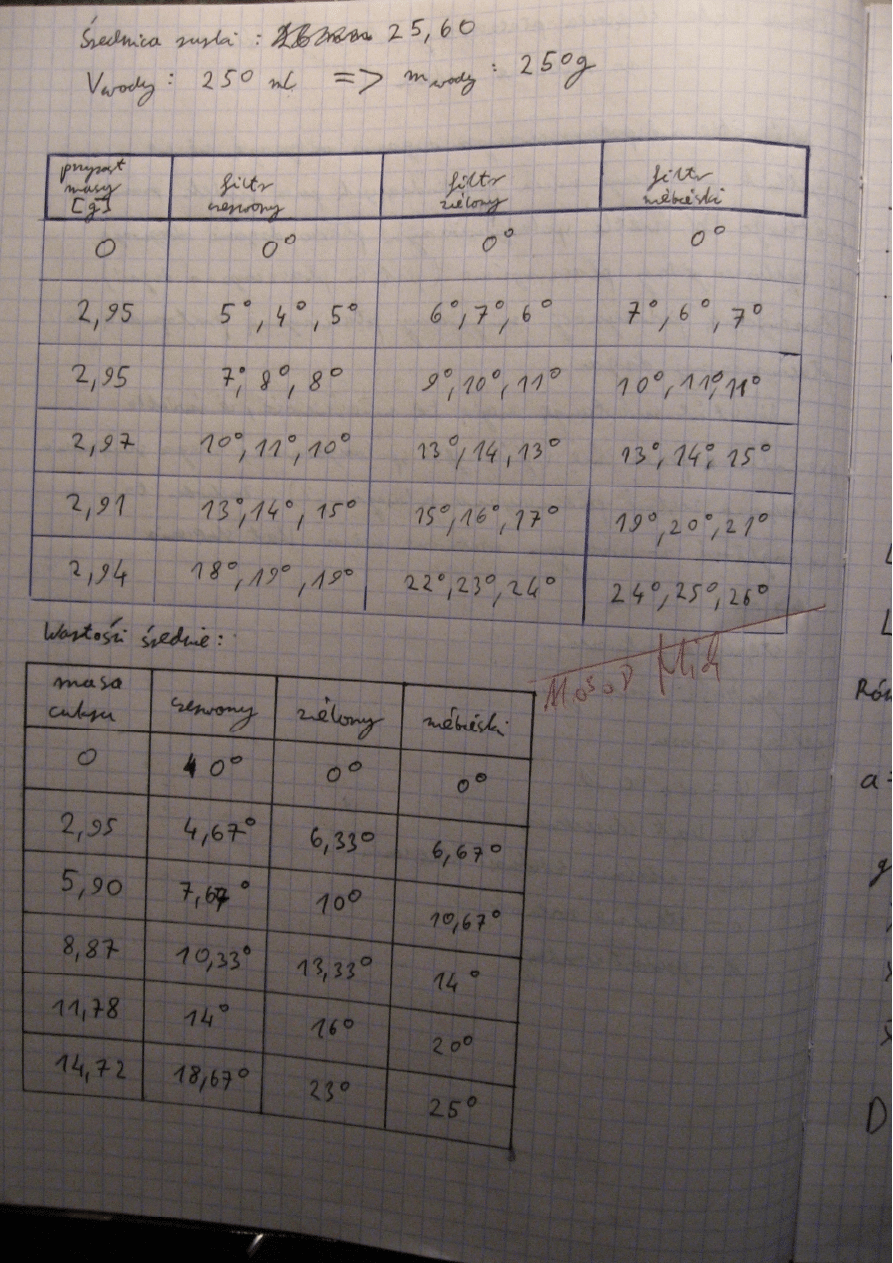 Średnica rurki : 25,60
Vwody : 250 ml => mwody : 250g
przyrost masy [g] filtr czerwony filtr zielony filtr niebieski
0 0° 0° 0°
2,95 5°, 4°, 5° 6°, 7°, 6° 7°, 6°, 7°
2,95 7°, 8°, 8° 9°, 10°, 11° 10°, 11°, 11°
2,97 10°, 11°, 10° 13°, 14, 13° 13°, 14°, 15°
2,91 13°, 14°, 15° 15°, 16°, 17° 19°, 20°, 21°
2,94 18°, 19°, 19° 22°, 23°, 24° 24°, 25°, 26°
Wartości średnie :
masa cukru czerwony zielony niebieski
0 0° 0° 0°
2,95 4,67° 6,33° 6,67°
5,90 7,67° 10° 10,67°
8,87 10,33° 13,33° 14°
11,78 14° 16° 20°
14,72 18,67° 23° 25°
a =
D